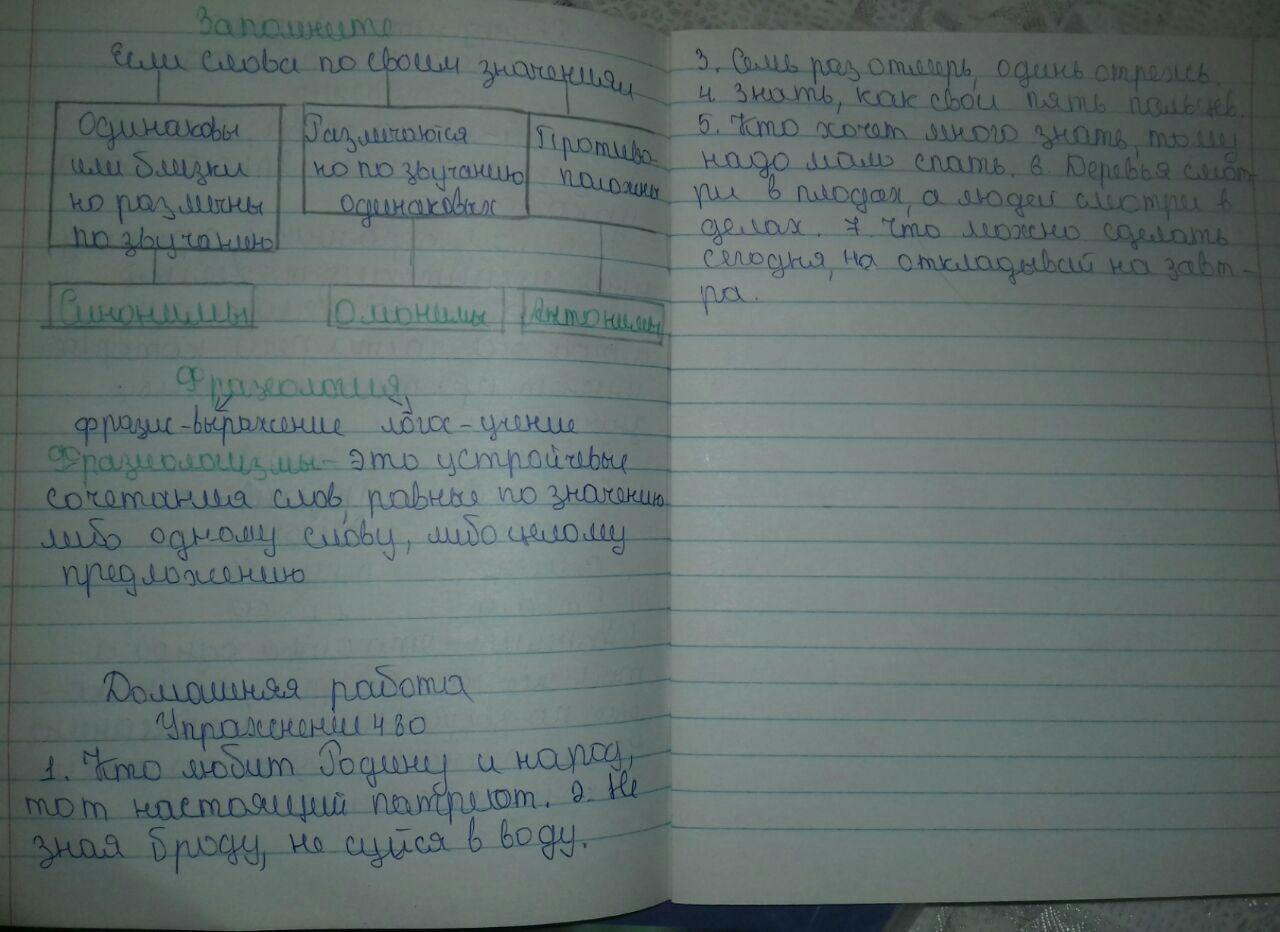 Запомните
Если слова по своим значениям
Одинаковы
или близки
но различны
по звучанию
Различаются
но по звучанию
одинаковых
Противо-
положны
Синонимы
Омонимы
Антонимы
Фразеология
фразис-выражение логос-учение
Фразеологизмы-это устройчевые
сочетания слов, равные по значению
либо одному слову, либо целому
предложению
Домашняя работа
Упражнении 430
1. Кто любит Родину и народ,
тот настоящий патриот. 2. Не
зная броду, не суйся в воду.
3. Семь раз отмерь, одинь отрежь.
4. Знать, как свои пять пальцев.
5. Кто хочет много знать, тому
надо мало спать. 6. Деревья смот
ри в плодах, а людей смотри в
делах. 7. Что можно сделать
сегодня, на откладывай на завт-
ра.